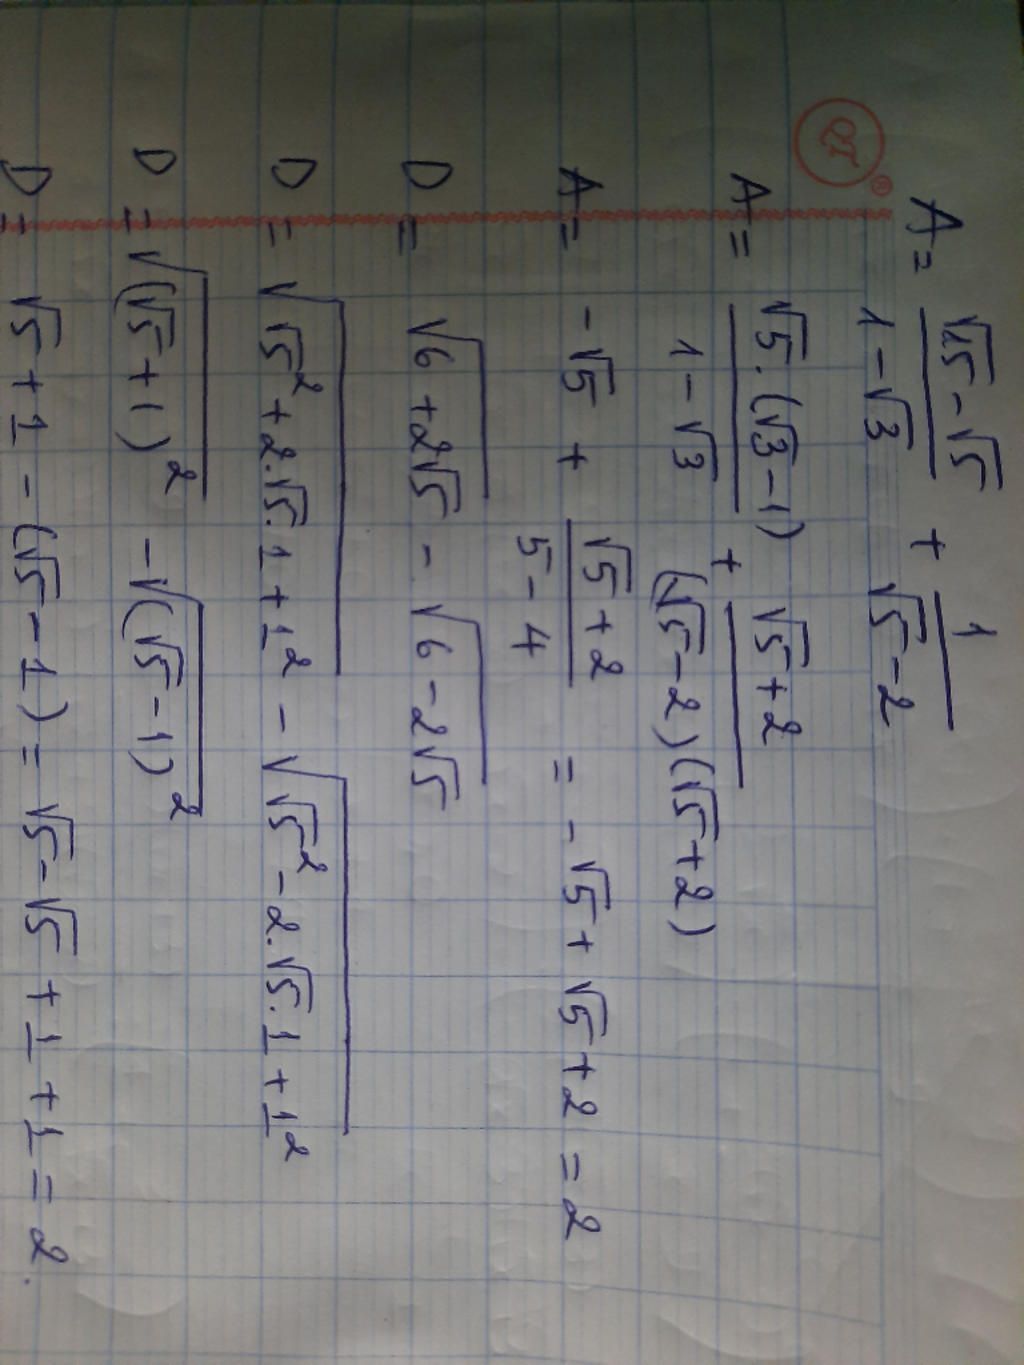 A = (√15 - √5)/(1 - √3) + 1/(√5 - 2)
A = (√5.(√3 - 1))/(1 - √3) + (√5 + 2)/((√5 - 2)(√5 + 2))
A = -√5 + (√5 + 2)/(5 - 4) = -√5 + √5 + 2 = 2
D = √(6 + 2√5) - √(6 - 2√5)
D = √(√5² + 2.√5.1 + 1²) - √(√5² - 2.√5.1 + 1²)
D = √((√5 + 1)²) - √((√5 - 1)²)
D = √5 + 1 - (√5 - 1) = √5 - √5 + 1 + 1 = 2.